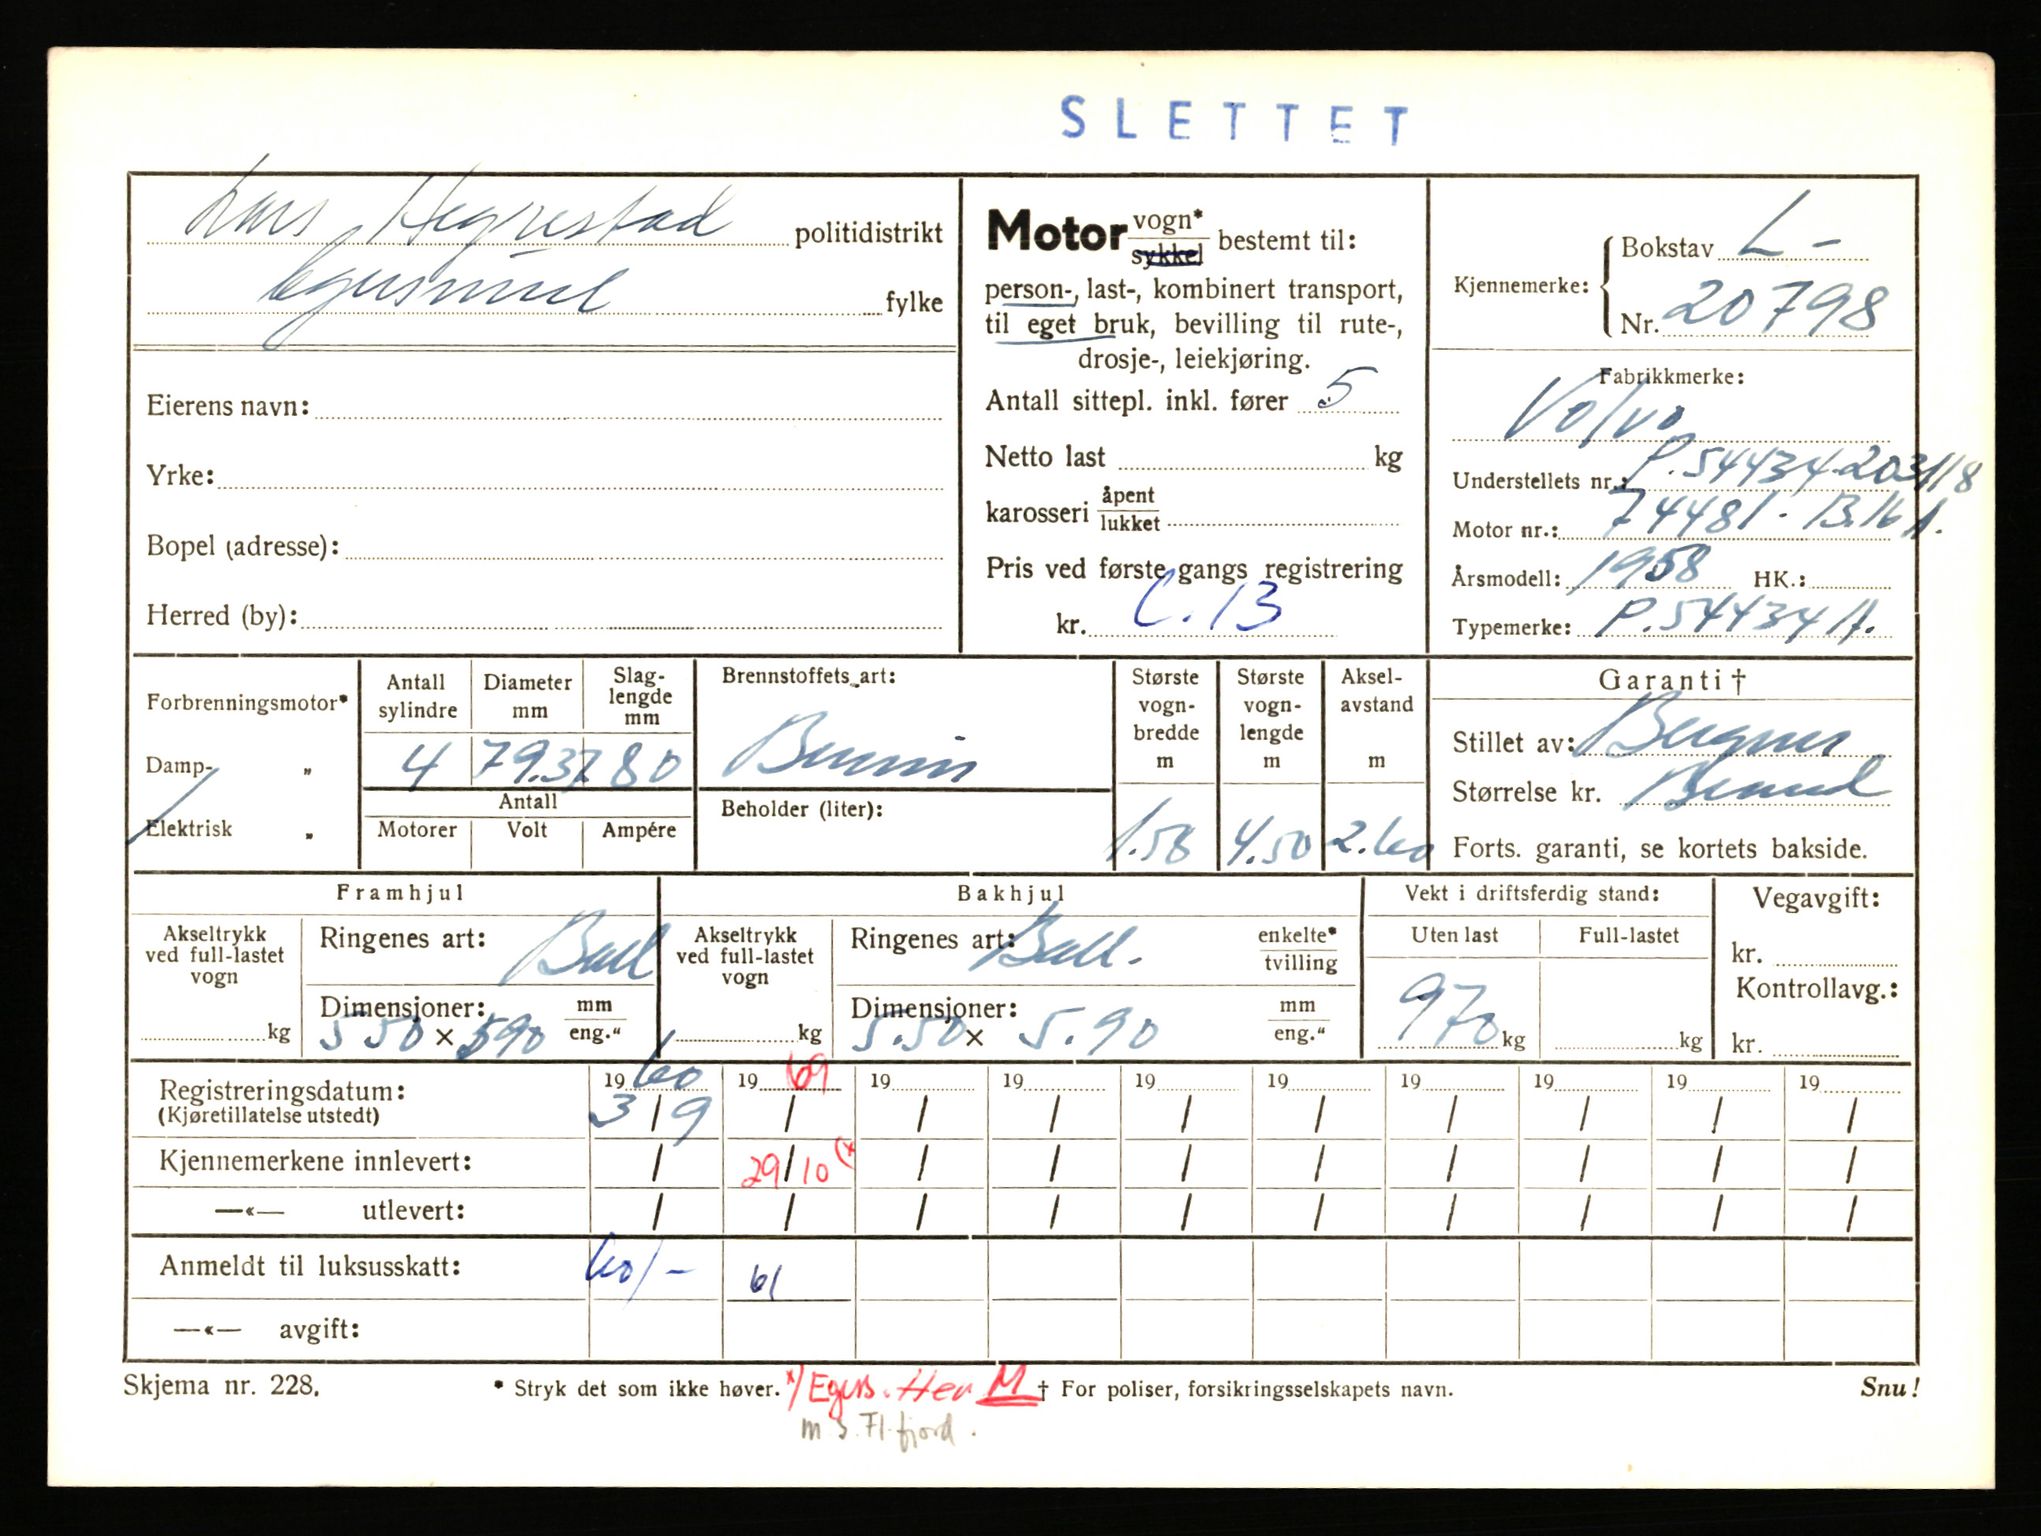 SLETTET
Lars Hegrestad politidistrikt
Egersund fylke
Eierens navn:
Yrke:
Bopel (adresse):
Herred (by):
Motor vogn* sykkel bestemt til:
person-, last-, kombinert transport,
til eget bruk, bevilling til rute-,
drosje-, leiekjøring.
Antall sittepl. inkl. fører 5
Netto last kg
karosseri åpent lukket
Pris ved første gangs registrering
kr. C.13
Kjennemerke: Bokstav L-
Nr. 20798
Fabrikkmerke:
Volvo
Understellets nr.: P.54434.203118
Motor nr.: 74481 - B.16 A.
Årsmodell: 1958 HK.:
Typemerke: P.54434 A.
Forbrenningsmotor*
Damp- „
Elektrisk „
Antall sylindre Diameter mm Slag-lengde mm
4 79.37 80
Antall
Motorer Volt Ampére
Brennstoffets art:
Bensin
Beholder (liter):
Største vogn-bredde m Største vogn-lengde m Aksel-avstand m
1.58 4.50 2.60
Garanti †
Stillet av:
Størrelse kr.
Forts. garanti, se kortets bakside.
Framhjul
Akseltrykk ved full-lastet vogn
kg
Ringenes art: Ball
Dimensjoner: mm eng."
550 x 590
Bakhjul
Akseltrykk ved full-lastet vogn
kg
Ringenes art: Ball. enkelte* tvilling
Dimensjoner: mm eng."
5.50 x 5.90
Vekt i driftsferdig stand:
Uten last Full-lastet
970 kg kg
Vegavgift:
kr.
Kontrollavg.:
kr.
19 60 19 69 19 19 19 19 19 19 19 19
Registreringsdatum: 3/9 / / / / / / / / /
(Kjøretillatelse utstedt)
Kjennemerkene innlevert: / 29/10 (x / / / / / / / /
—«— utlevert: / / / / / / / / / /
Anmeldt til luksusskatt: 60/- 61
—«— avgift:
Skjema nr. 228. * Stryk det som ikke høver. x/ Egers. Her M † For poliser, forsikringsselskapets navn. Snu!
m S. Fl. fjord.